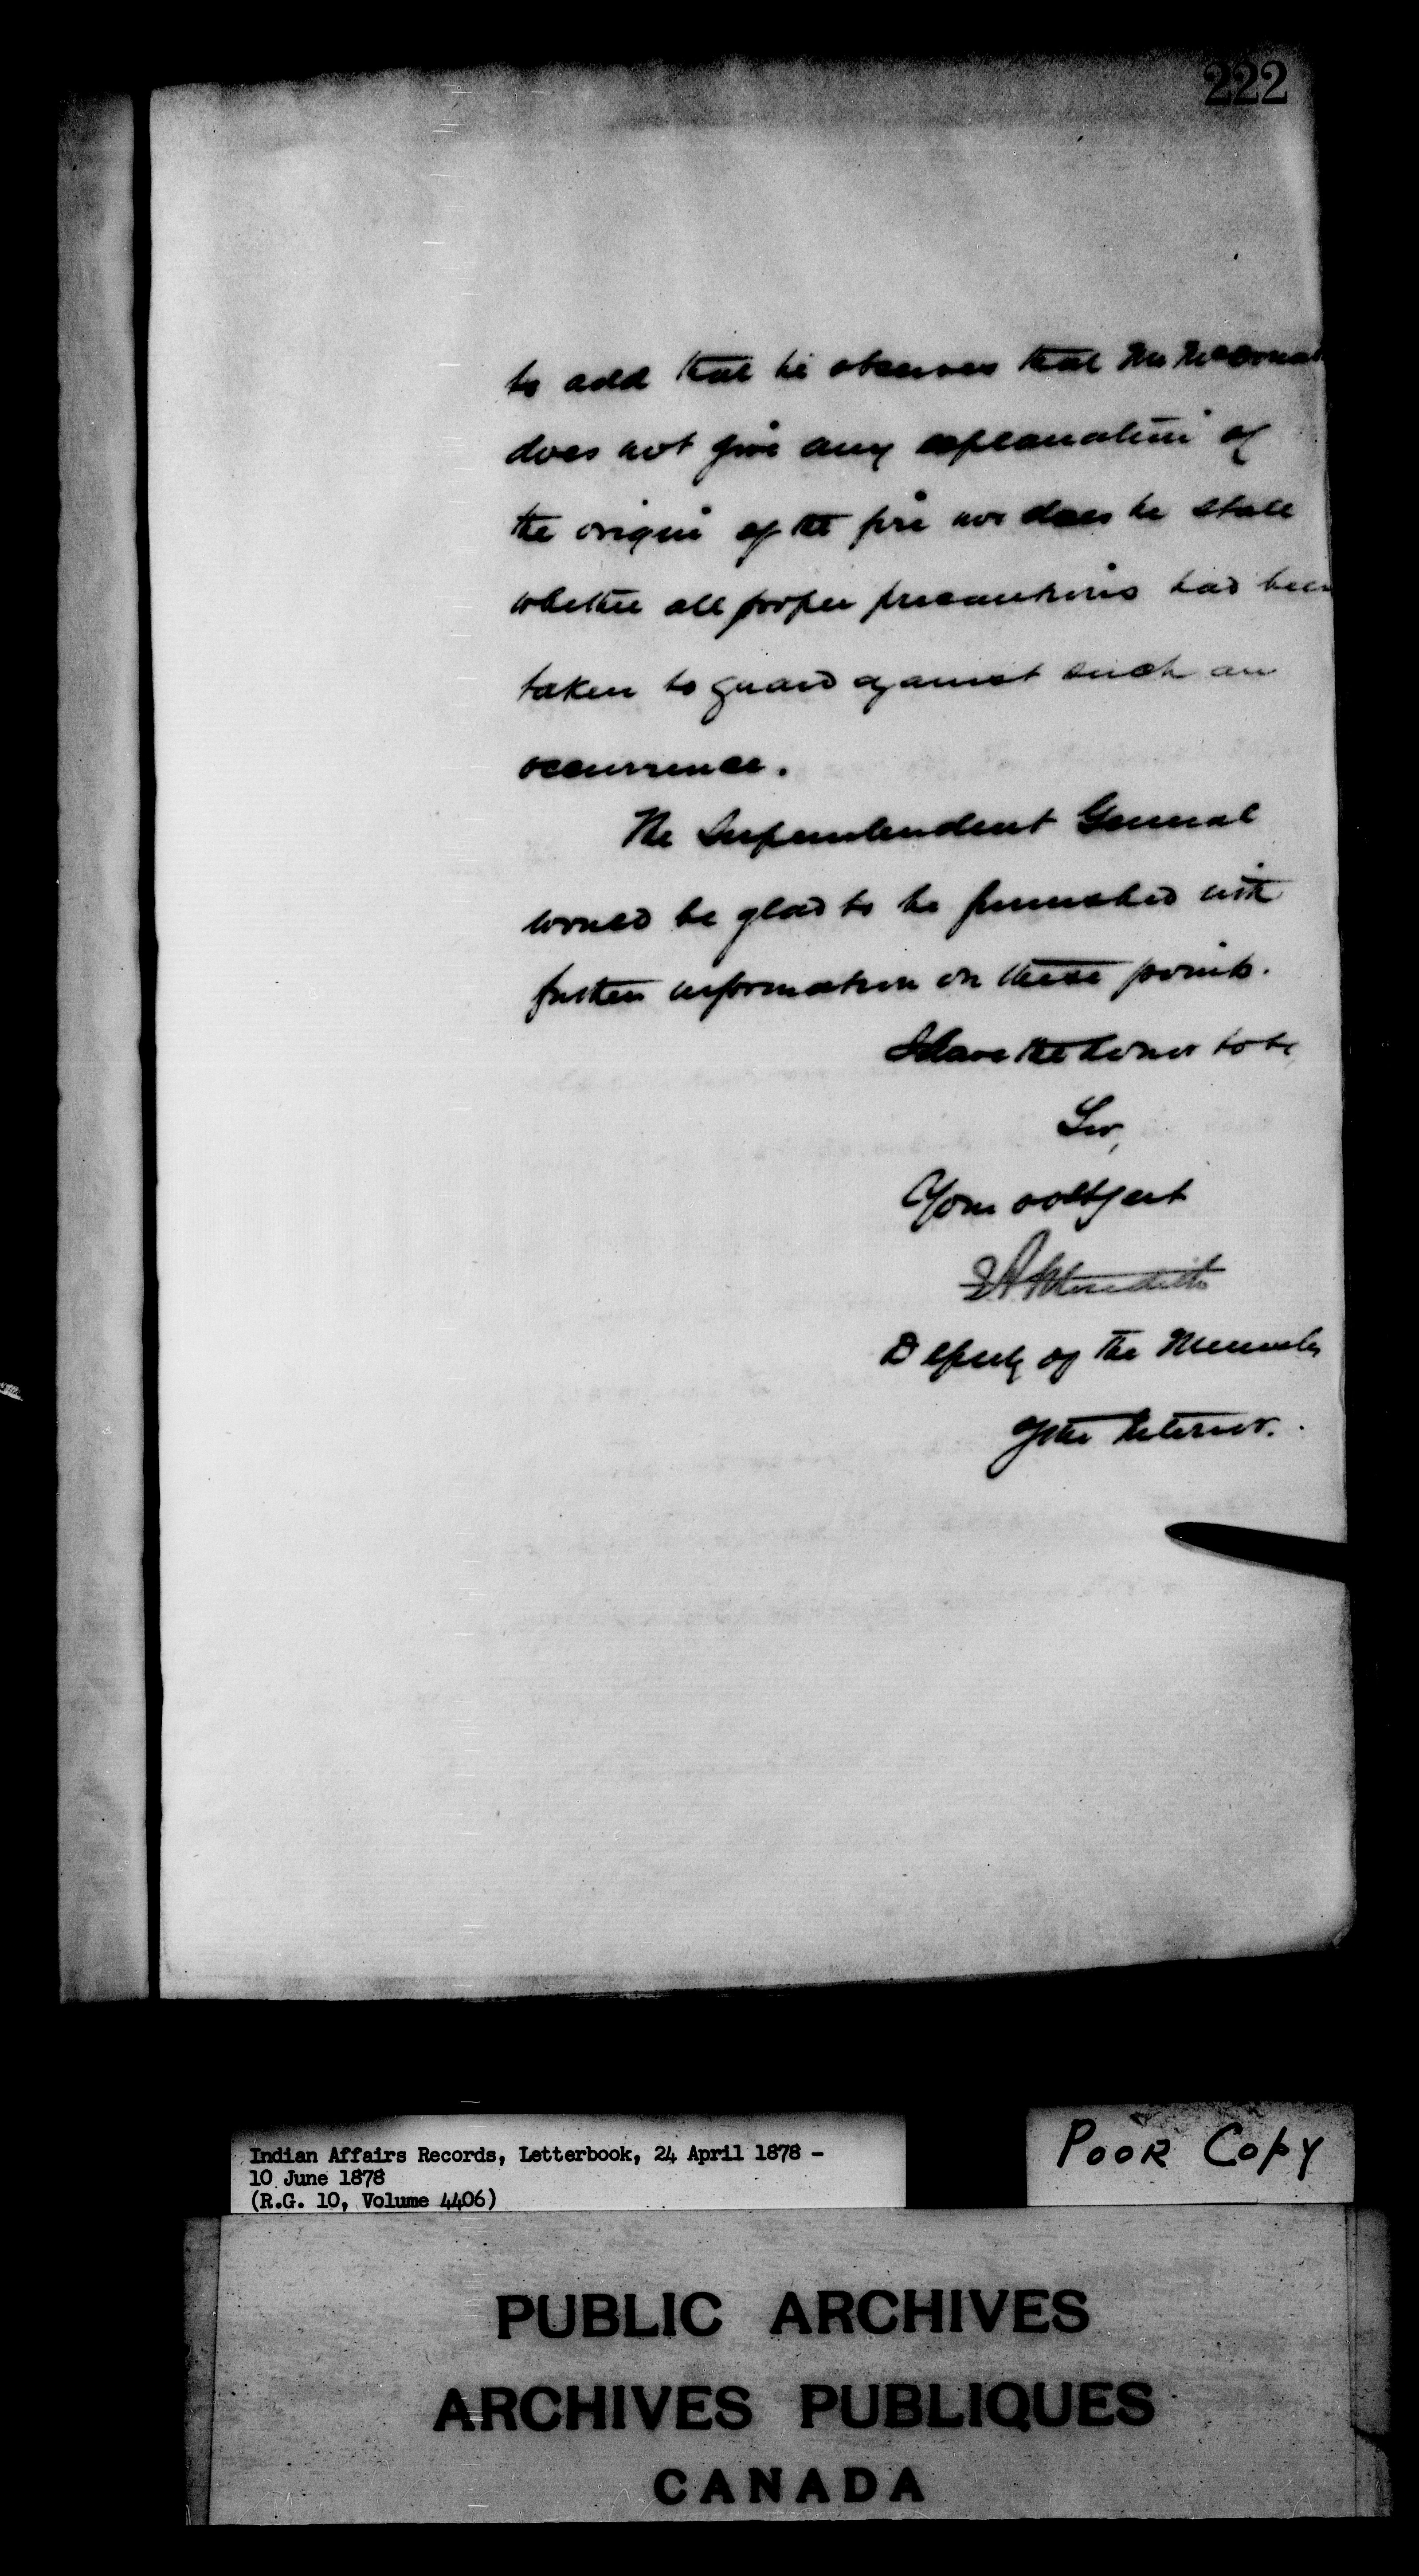 222
to add that he observes that Mr McDonal
does not give any explanation of
the origin of the fire nor does he state
whether all proper precautions had been
taken to guard against such an
occurrence.
The Superintendent General
would be glad to be furnished with
further information on these points.
I have the honor to be,
Sir,
Your obedt servt
E A Meredith
Deputy of the Minister
of the Interior.
Indian Affairs Records, Letterbook, 24 April 1878 -
10 June 1878
(R.G. 10, Volume 4406)
POOR COPY
PUBLIC ARCHIVES
ARCHIVES PUBLIQUES
CANADA